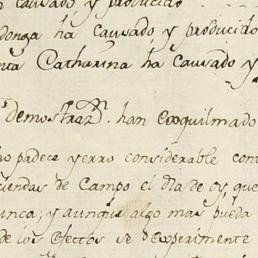 causado y producido
donga ha causado y producido
nta Catharina ha causado y
demostraz.n han esquilmado
no padece yerro considerable con
ciendas de Campo el dia de oy, que
unca; y aunque algo mas pueda
de los efectos se experimente